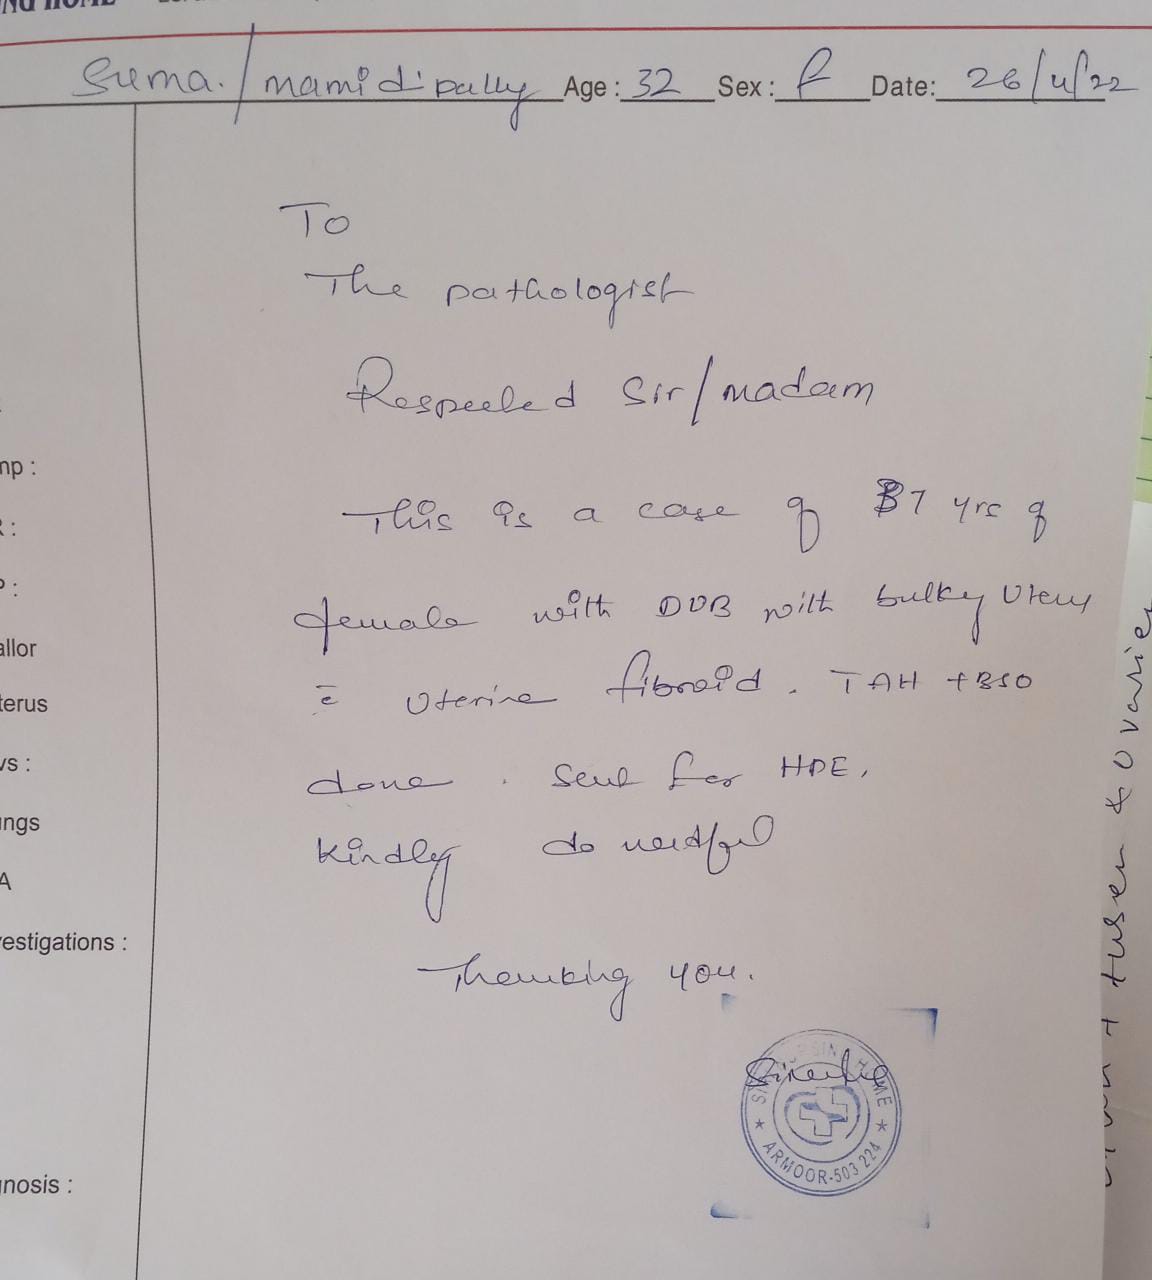 HOME
Suma. / mamidipally Age : 32 Sex : f Date: 26/4/22
To
The pathologist
Respected Sir/madam
This is a case of 37 yrs of
female with DUB with bulky uterus
c̄ Uterine fibroid. TAH + BSO
done. Sent for HPE.
Kindly do needful
Thanking you.
mp :
R :
P :
allor
terus
vs :
ungs
A
vestigations :
gnosis :
NURSING HOME
★ ARMOOR-503 224 ★
+ tuser & Ovaries